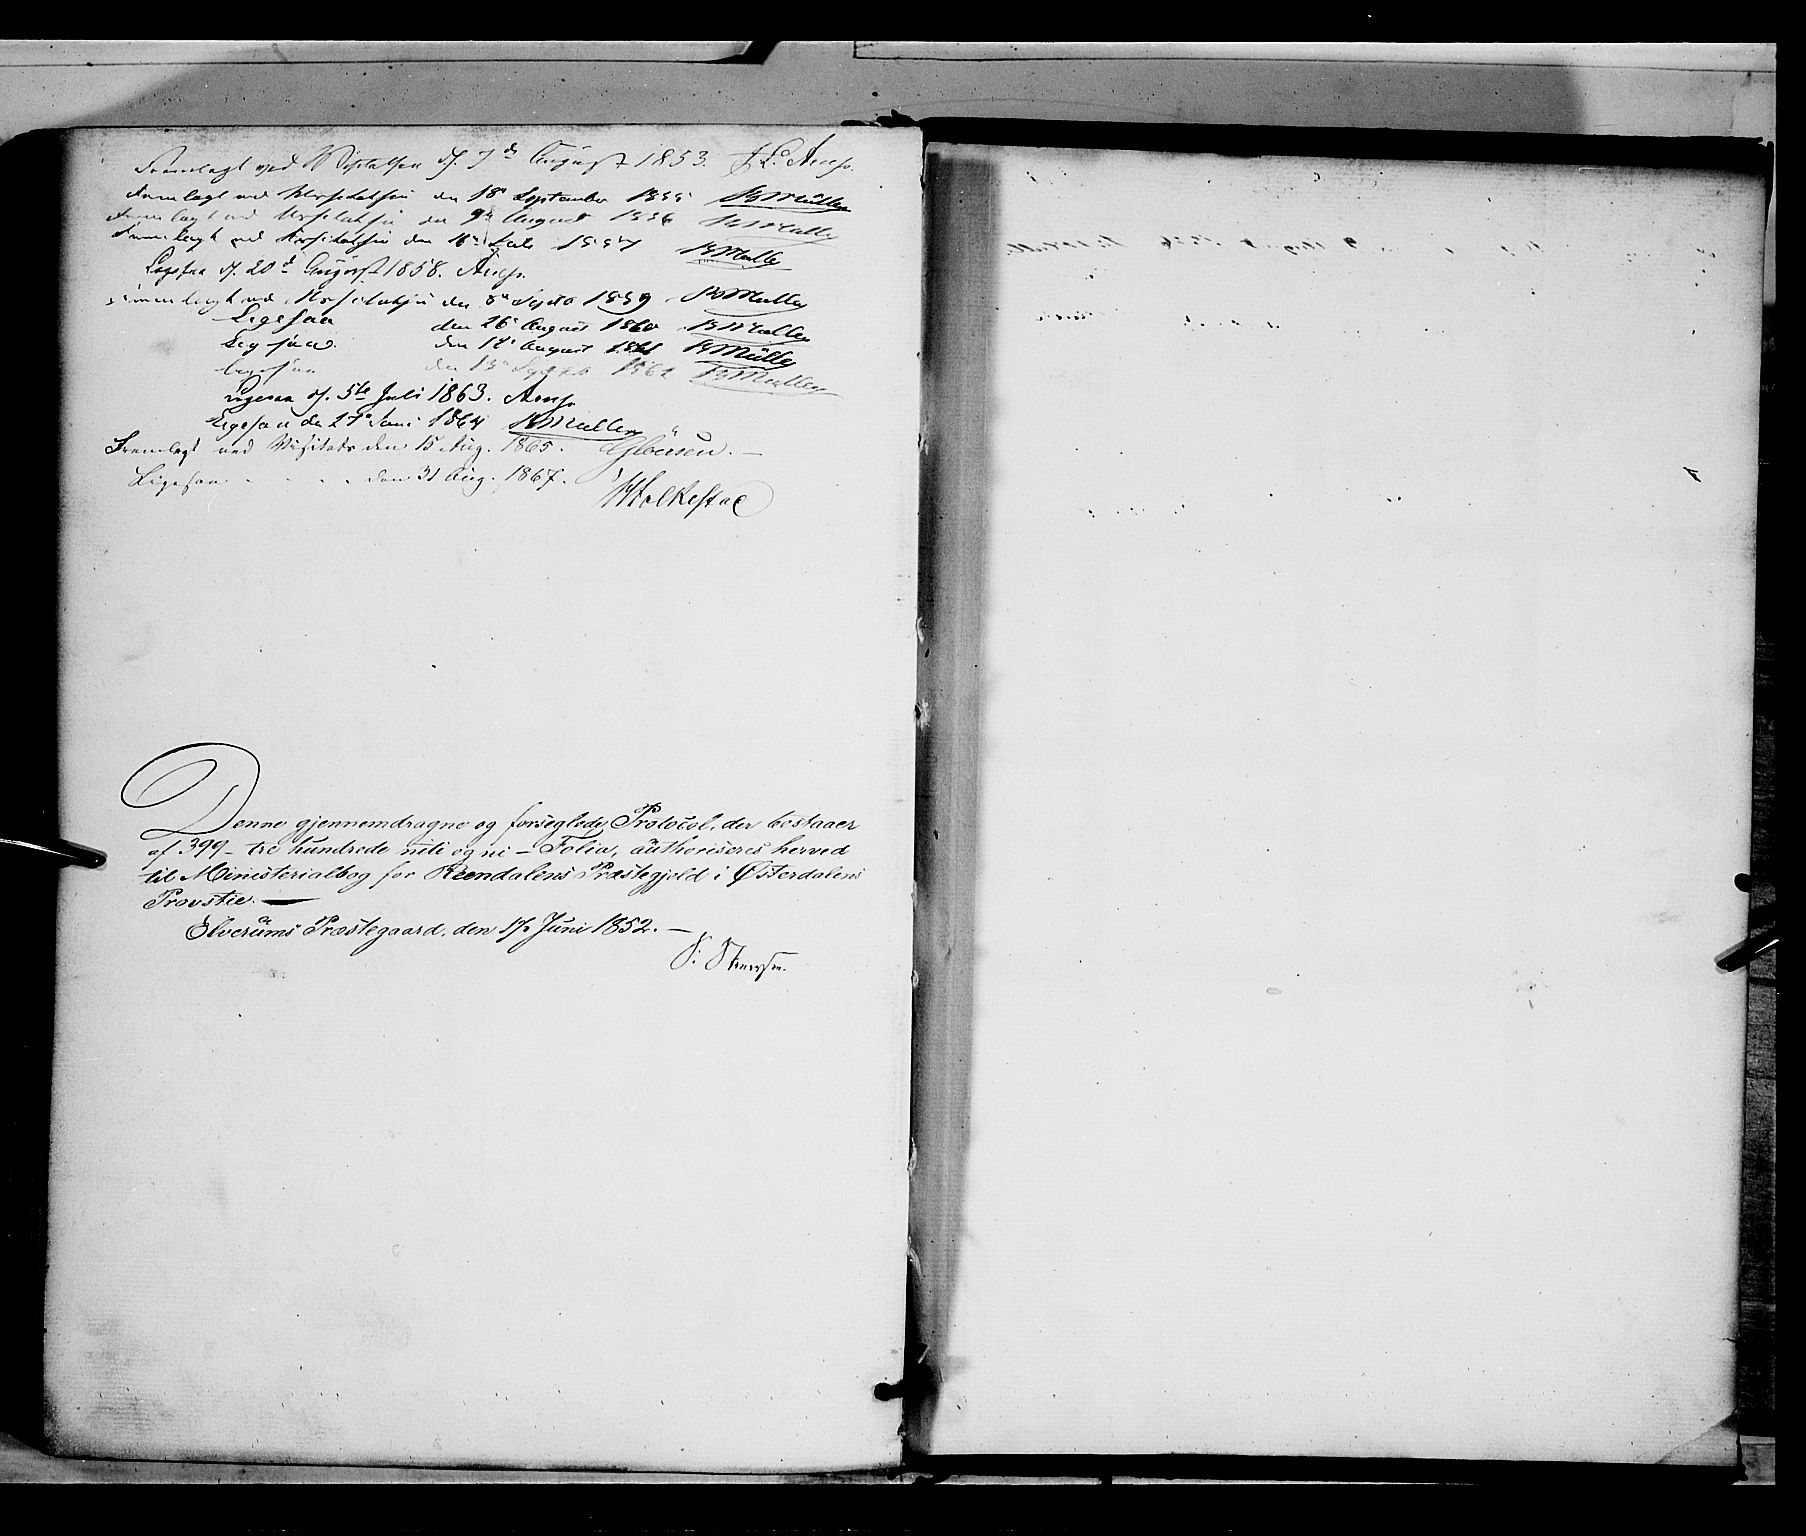 Fremlagt ved Visitatsen d. 7d August 1853. Arup.
Fremlagt ved Visitatsen den 18e September 1855 Müller
Fremlagt ved Visitatsen den 9e August 1856 Müller
Fremlagt ved Visitatsen den 16e Juli 1857 Müller
Ligesaa d. 20d August 1858. Arup.
Fremlagt ved Visitatsen den 8e Septb 1859 Müller
Ligesaa den 26e August 1860 Müller
Ligesaa den August 1861 Müller
Ligesaa den 13e Septb 1862 Müller
Ligesaa d. 5te Juli 1863. Arup.
Ligesaa den 27e Juni 1864 Müller
Fremlagt ved Visitats den 15 Aug. 1865.
Ligesaa - - - - den 31 Aug. 1867.
H Folkestad
Denne gjennemdragne og forseglede Protocol, der bestaaer
af 399 - tre hundrede niti og ni - Folia, authoriseres herved
til Ministerialbog for Reendalens Præstegjeld i Østerdalens
Provstie. —
Elverums Præstegaard, den Juni 1852. —
S. Stenersen.